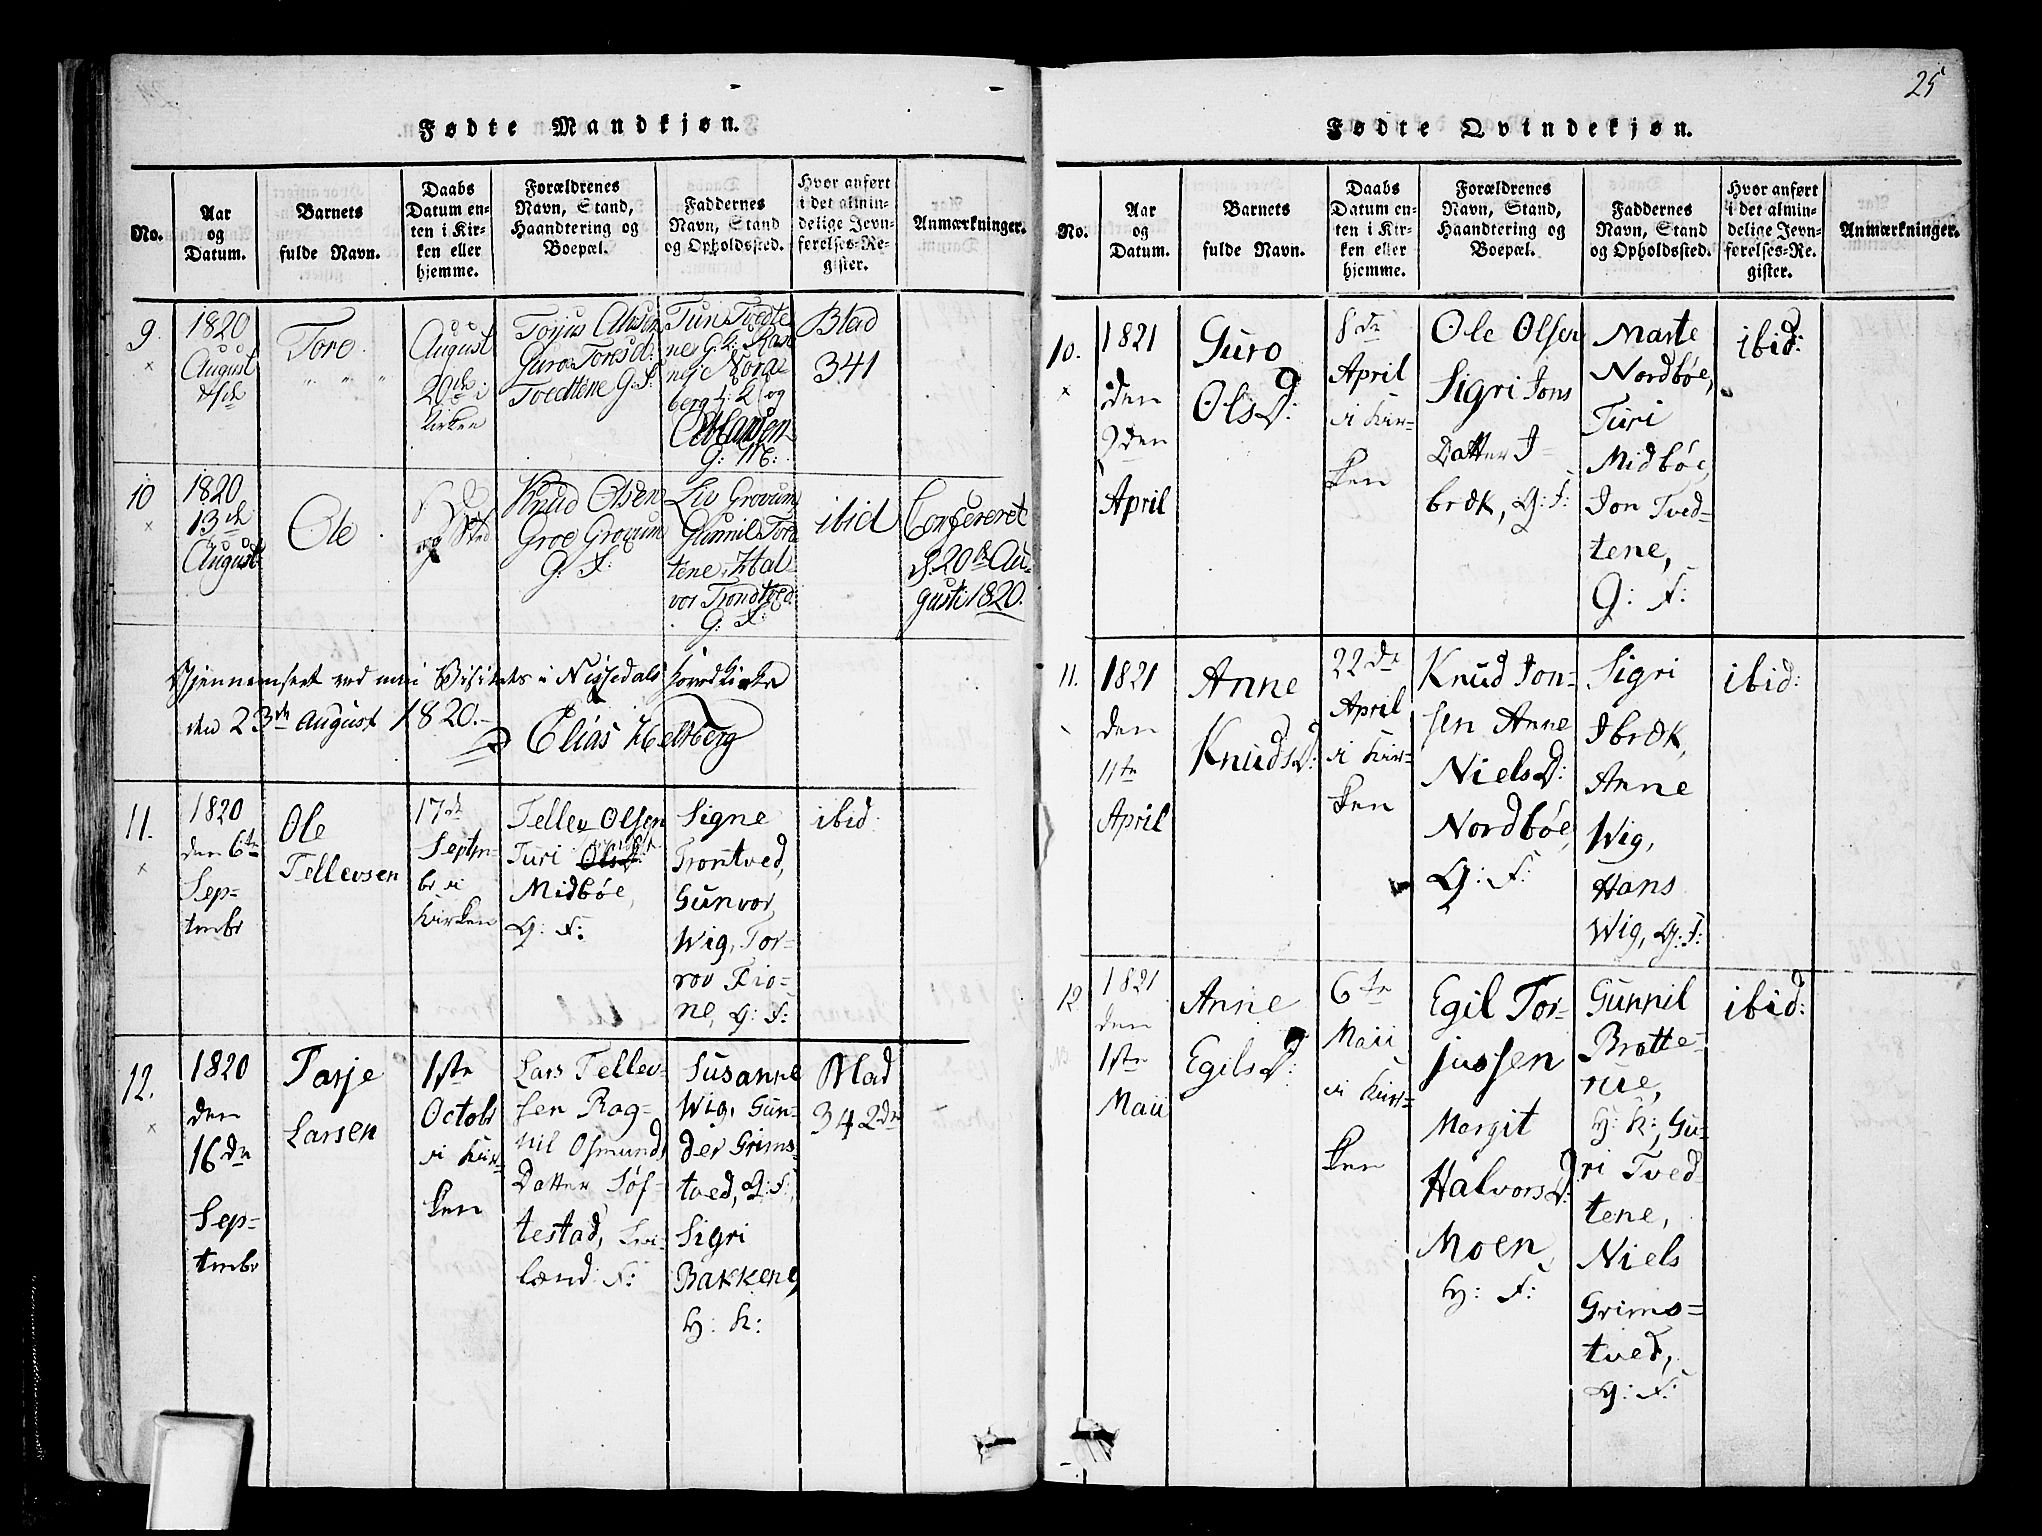 Fødte Mandkjøn.
No.
Aar
og
Datum.
Barnets
fulde Navn.
Daabs
Datum en-
ten i Kir-
ken eller
hjemme.
Forældrenes
Navn, Stand,
Haandtering og
Boepæl.
Faddernes
Navn, Stand
og Opholdssted.
Hvor anført
i det almin-
delige Jevn-
førelses-Re-
gister.
Anmærkninger.
9.
1820
August
Tore
August
20de i
Kirken
Torjus
Guro Toresd:
Tvedtene G. F:
Tvedte
ne G. K:
berg
og
G:
Blad
341
10
1820
13de
August
Ole
og Sted
Knud Olsen
Groe Grovum
G: F:
Liv Grovum
Gunnil Tved
tene, Hal-
vor Trondtved
G: F:
ibid
Confereret
d. 20de Au-
gusti 1820.
Gjennemseet ved min Visitats i Nissedals Hovedkirke
den 23de August 1820.
Elias
11.
1820
den 6te
Sep-
tember
Ole
Tellevsen
17de
Septm-
br i
Kirken
Tellev Olsen
Turi
Midbøe,
G: F:
Signe
Trontved,
Gunvor
Wig, Tor-
rov Fio-
ne, G: F:
ibid:
12.
1820
den
16de
Sep-
tmbr
Tarje
Larsen
1ste
Octobr
i Kir-
ken
Lars Tellev-
sen Rag-
nil Osmund
Datter Søf-
testad,
Susanne
Wig, Gun-
der Grims-
tved, G: F:,
Sigri
Bakken,
H: K:
Blad
342de
25
Fødte Qvindekjøn.
No.
Aar
og
Datum.
Barnets
fulde Navn.
Daabs
Datum en-
ten i Kir-
ken eller
hjemme.
Forældrenes
Navn, Stand,
Haandtering og
Boepæl.
Faddernes
Navn, Stand
og Opholdssted.
Hvor anført
i det almin-
delige Jevn-
førelses-Re-
gister.
Anmærkninger.
10.
1821
den
9den
April
Guro
OlsD:
8de
April
i Kir-
ken
Ole Olsen
Sigri Jons
Datter I-
bræk, G: F:
Marte
Nordbøe,
Turi
Midbøe,
Jon Tved-
tene,
G: F:
ibid:
11.
1821
den
11te
April
Anne
KnudsD:
22de
April
i Kir-
ken
Knud Jon-
sen Anne
NielsD:
Nordbøe,
G: F:
Sigri
Ibræk,
Anne
Wig,
Hans
Wig, G: F:
ibid:
12
1821
den
1ste
Maii
Anne
EgilsD:
6te
Maii
i Kir-
ken
Egil Tor-
jussen
Margit
HalvorsD:
Moen,
H: F:
Gunnil
Bratte-
rue,
H: K:, Gu-
ri Tved-
tene,
Niels
Grims-
tved,
G: F:
ibid: